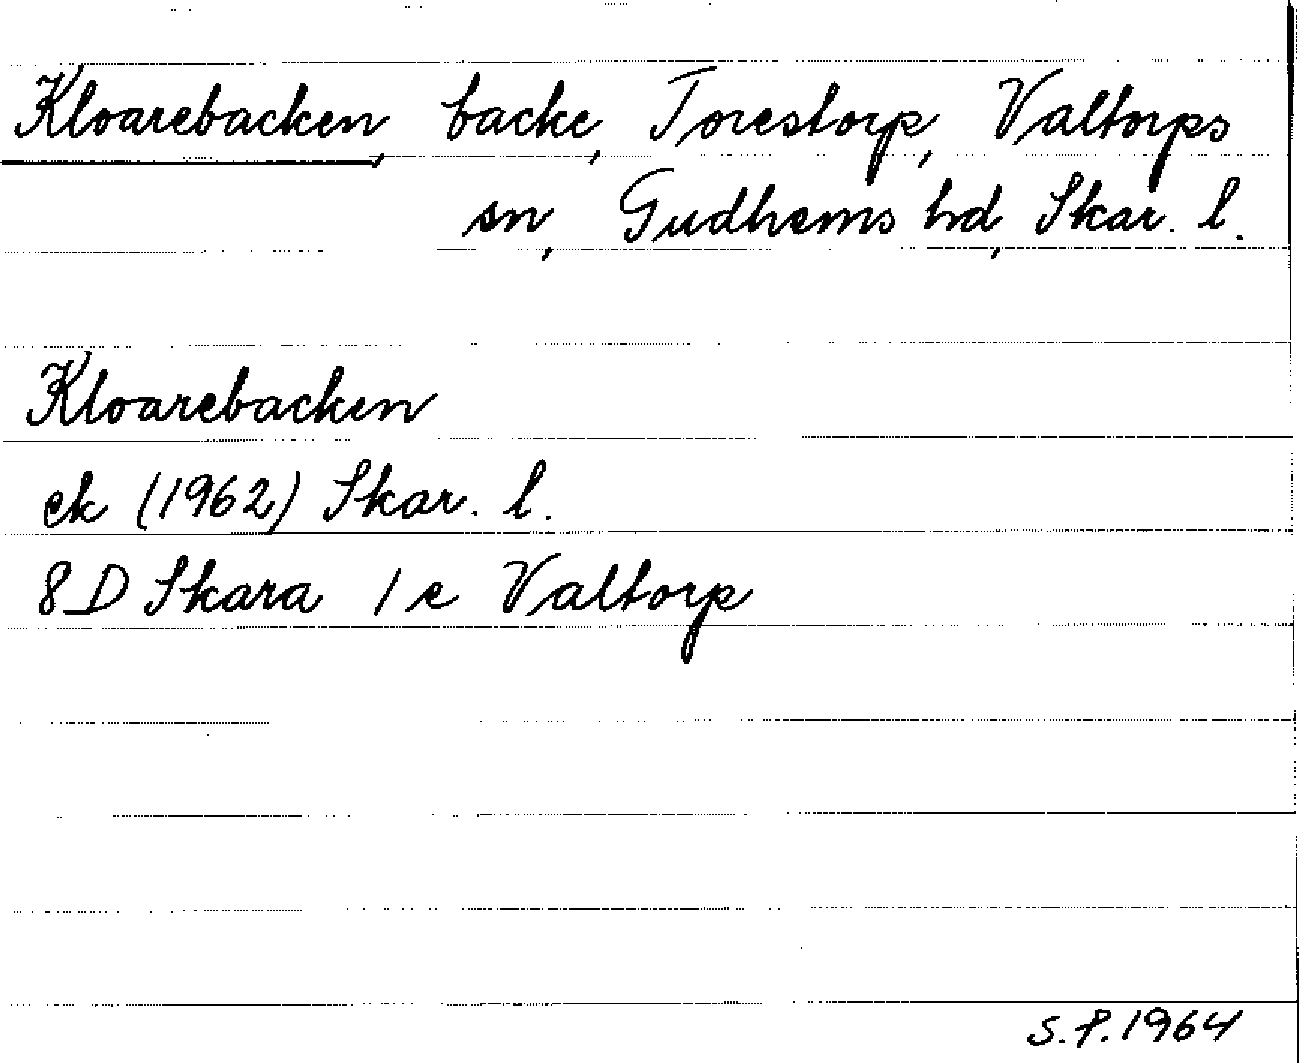 Kloarebacken, backe, Torestorp, Valtorps
sn, Gudhems hd, Skar. l.
Kloarebacken
ek (1962) Skar. l.
8D Skara 1e Valtorp
S.F. 1964